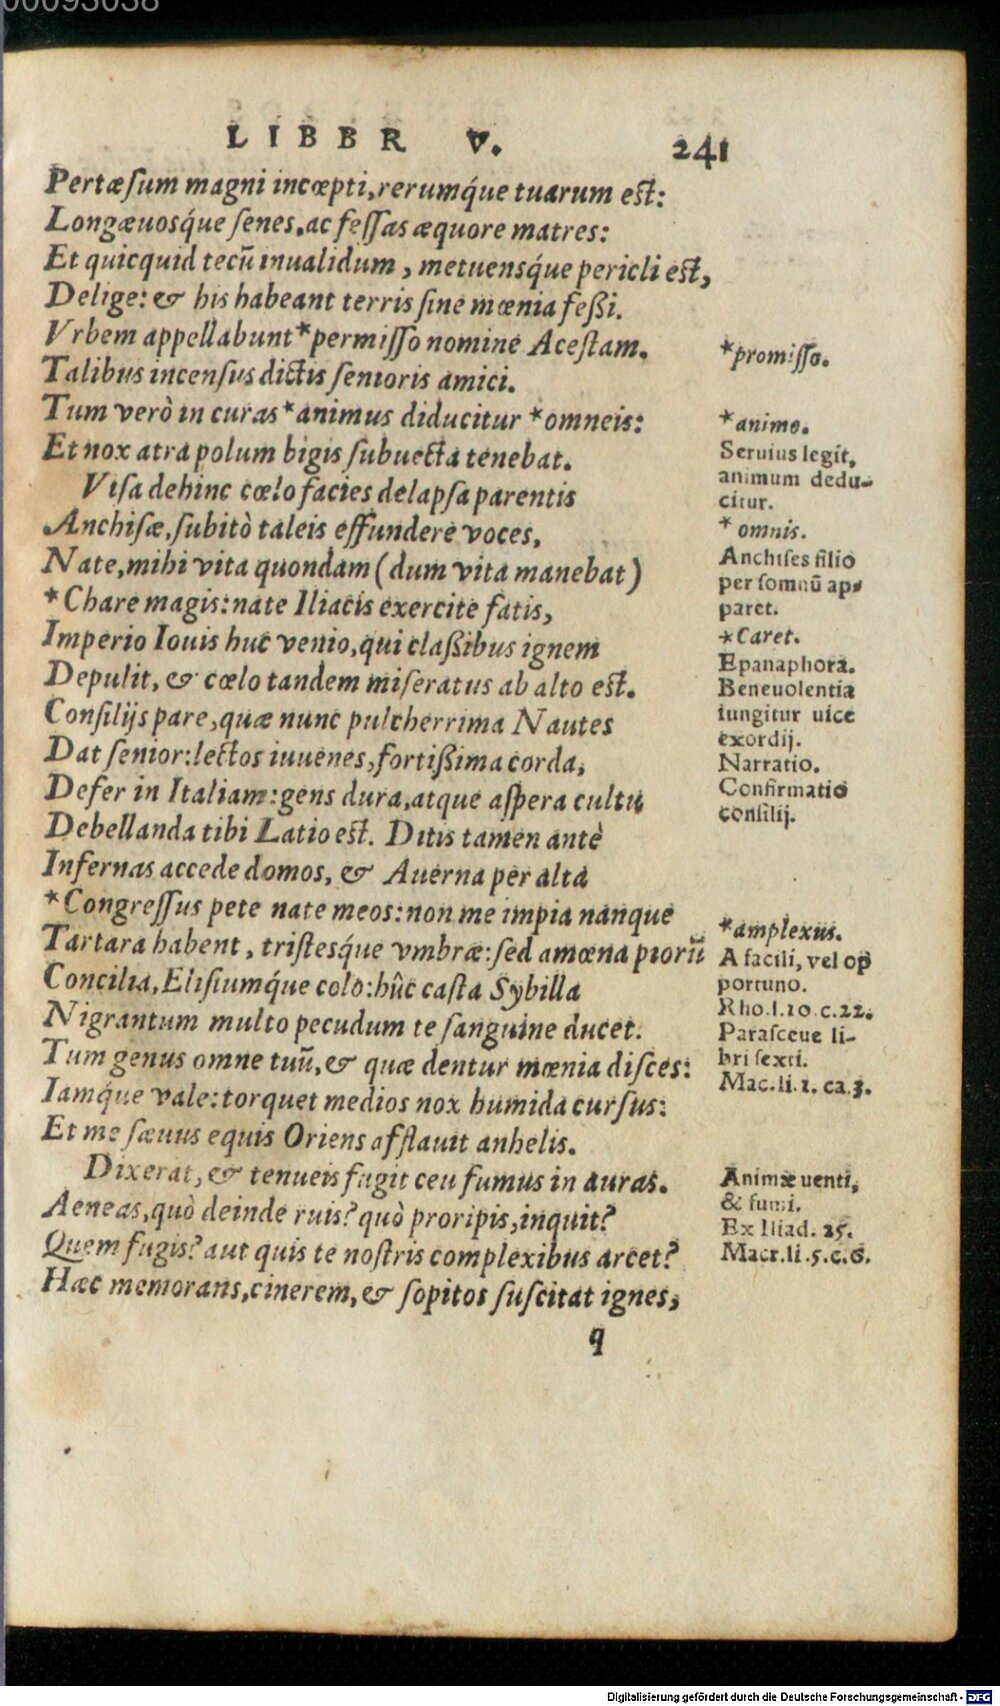 00093038
LIBBR V. 241
Pertæsum magni incœpti, rerumq́ue tuarum est:
Longæuosq́ue senes, ac fessas æquore matres:
Et quicquid tecũ inualidum, metuensq́ue pericli est,
Delige: & his habeant terris sine mœnia feßi.
Vrbem appellabunt *permisso nomine Acestam.
*promisso.
Talibus incensus dictis senioris amici.
Tum verò in curas *animus diducitur *omneis:
*animo.
Et nox atra polum bigis subuecta tenebat.
Seruius legit,
animum dedu-
Visa dehinc cœlo facies delapsa parentis
citur.
Anchisæ, subitò taleis effundere voces,
* omnis.
Nate, mihi vita quondam (dum vita manebat)
Anchises filio
per somnũ ap-
*Chare magis: nate Iliacis exercite fatis,
paret.
Imperio Iouis huc venio, qui claßibus ignem
*Caret.
Depulit, & cœlo tandem miseratus ab alto est.
Epanaphora.
Beneuolentia
Consilijs pare, quæ nunc pulcherrima Nautes
iungitur uice
Dat senior: lectos iuuenes, fortißima corda,
exordij.
Narratio.
Defer in Italiam: gens dura, atque aspera cultu
Confirmatio
Debellanda tibi Latio est. Ditis tamen antè
consilij.
Infernas accede domos, & Auerna per alta
*Congressus pete nate meos: non me impia nanque
*amplexus.
Tartara habent, tristesq́ue vmbræ: sed amœna piorũ
A facili, vel op
Concilia, Elisiumq́ue colo: hûc casta Sybilla
portuno.
Rho.l.10.c.22.
Nigrantum multo pecudum te sanguine ducet.
Parasceue li-
Tum genus omne tuũ, & quæ dentur mœnia disces:
bri sexti.
Mac.li.1.ca.3.
Iamq́ue vale: torquet medios nox humida cursus:
Et me sæuus equis Oriens afflauit anhelis.
Dixerat, & tenueis fugit ceu fumus in auras.
Animæ uenti,
Aeneas, quò deinde ruis? quò proripis, inquit?
& fumi.
Ex Iliad. 25.
Quem fugis? aut quis te nostris complexibus arcet?
Macr.li.5.c.6.
Hæc memorans, cinerem, & sopitos suscitat ignes,
q
Digitalisierung gefördert durch die Deutsche Forschungsgemeinschaft - DFG